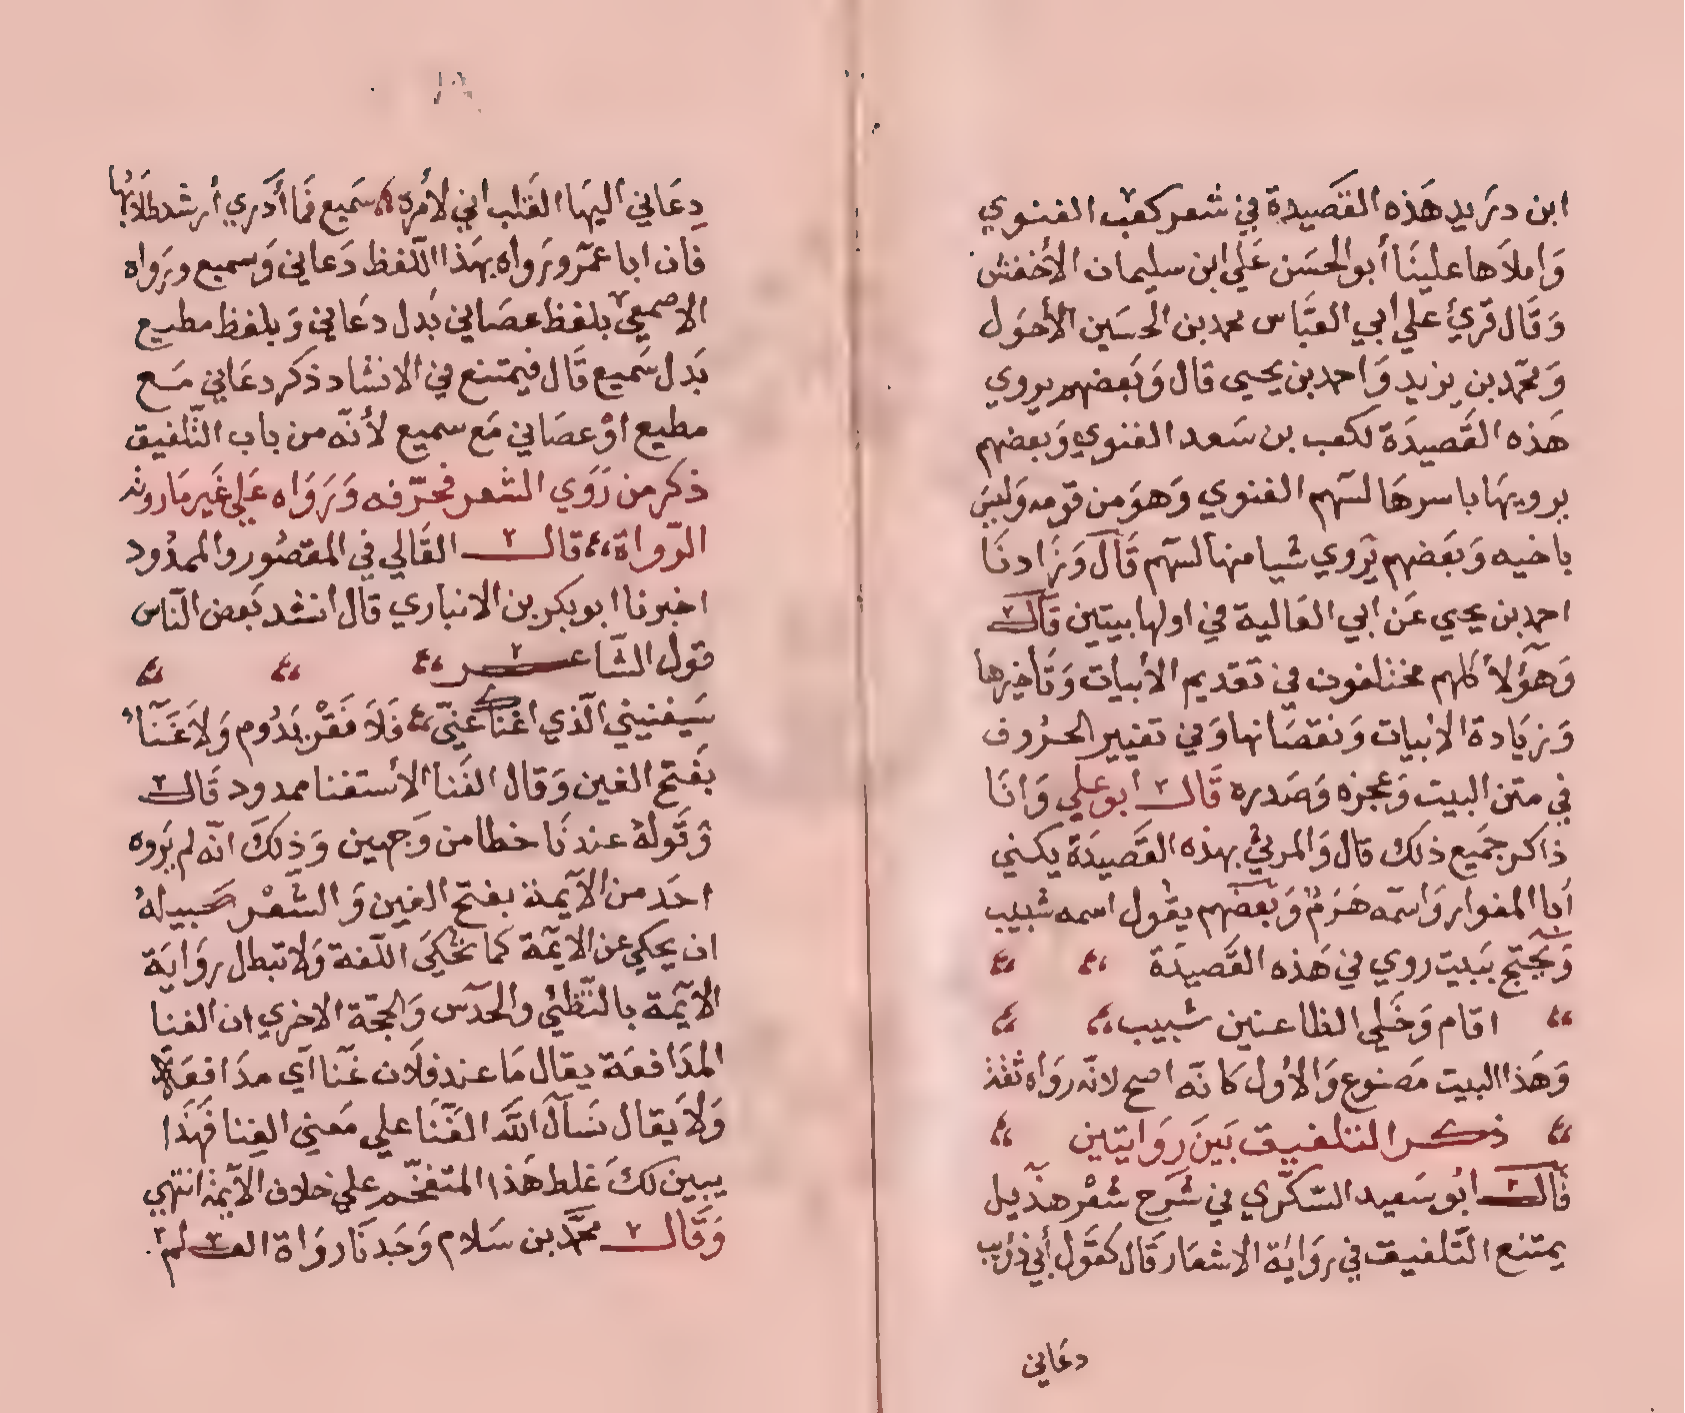 ابن دريد هذه القصيدة في شعر كعب الغنوي
وَاملاَها علينَا أبو الحسَن عَلي ابن سليمان الأخفش
وَقَال قرئ عَلي أبي العبَّاس محمد بن الحسَين الأحوَل
وَمحمّد بن يزيد وَاحمد بن يحيى قال وَبَعضهم يروي
هَذه القَصيدَة لكعب بن سَعد الغنوي وَبعَضهم
يرويهَا باسرهَا لسَهم الغنوي وَهوَ من قومه وَليسَ
باخيه وَبعَضهم يَروي شيا منها لسَهم قَالَ وَزَادنَا
احمد بن يحيي عَن ابي العَالية في اولها بيتين قَالَ
وَهَؤلآ كلهم مختلفون في تقديم الأبيات وَتَأخيرها
وَزيَادة الأبيات وَنقصَانها وَفي تغيير الحرُوف
في متن البيت وَعجزه وَصَدره قَال ابو علي وَانَا
ذاكر جَميع ذلك قال وَالمرثي بهذه القَصيدَة يكني
أبا المغوار وَاسمَه هَرَمٌ وَبعَضهم يقُول اسمه شبيب
وَيَحتج ببَيت روي في هَذه القَصيدَة
اقام وَخَلي الظاعنين شبيب
وَهَذا البيت مَصنوع وَالأول كانّه اصح لانّه روَاه ثقة
ذكر التلفيق بَينَ رِوَايتين
قَال أبُو سَعيد السّكّري في شَرَح شعْر هذَيل
يمتنع التَّلفيق في روَايَة الاشعَار قَال كقَول أبي ذؤيب
دعَاني
دِعَاني اليهَا القَلب اني لأمره سَميع فَمَا أدَري أرشد طلَابُها
فان ابا عَمْرو رَوَاه بهَذا اللّفظ دَعاني وَسميع ورَواه
الاصمعي بلفظ عصَاني بَدل دعَاني وَبلفظ مطيع
بَدل سَميع قَال فيمتنع في الانشاد ذكر دعَاني مَع
مطيع اوْ عصَاني مَع سميع لأنّه من باب التّلفيق
ذكر من رَوَي الشعر فحرّفه وَرَوَاه عَلي غَير مَا روته
الرّواة قال القَالي في المقصُور والممدُود
اخبرنا ابو بكر بن الانباري قال انشد بَعض النّاس
قول الشَّاعر
سَيغنيني الَّذي اغناك عنّي فَلَا فَقْر يَدُوم وَلاَ غَنَآُ
بفَتح الغين وَقال الغَنا الأستغنا ممدود قَال
وَقَولهُ عندنَا خطا من وَجهين وَذلكَ انّه لم يَروه
احَد من الآيمة بفتح الغين وَالشّعْر سَبيلهُ
ان يحكي عن الايمّة كما تحُكَي اللّغة وَلا تبطل روَايَة
الايّمة بالتَّظنّي والحَدَس وَالحجّة الاخري ان الغنا
المدَافعَة يقال مَا عند فلَان غَنآ اي مدَافعَة
وَلاَ يقال نسَأل اللَّه الغَنَا علي مَعني الغِنا فَهَذا
يبين لكَ غلط هَذا المتفَخّم علي خلاف الآيمة انتهي
وَقَال محمَّد بن سَلام وَجَدنَا روَاة العلم